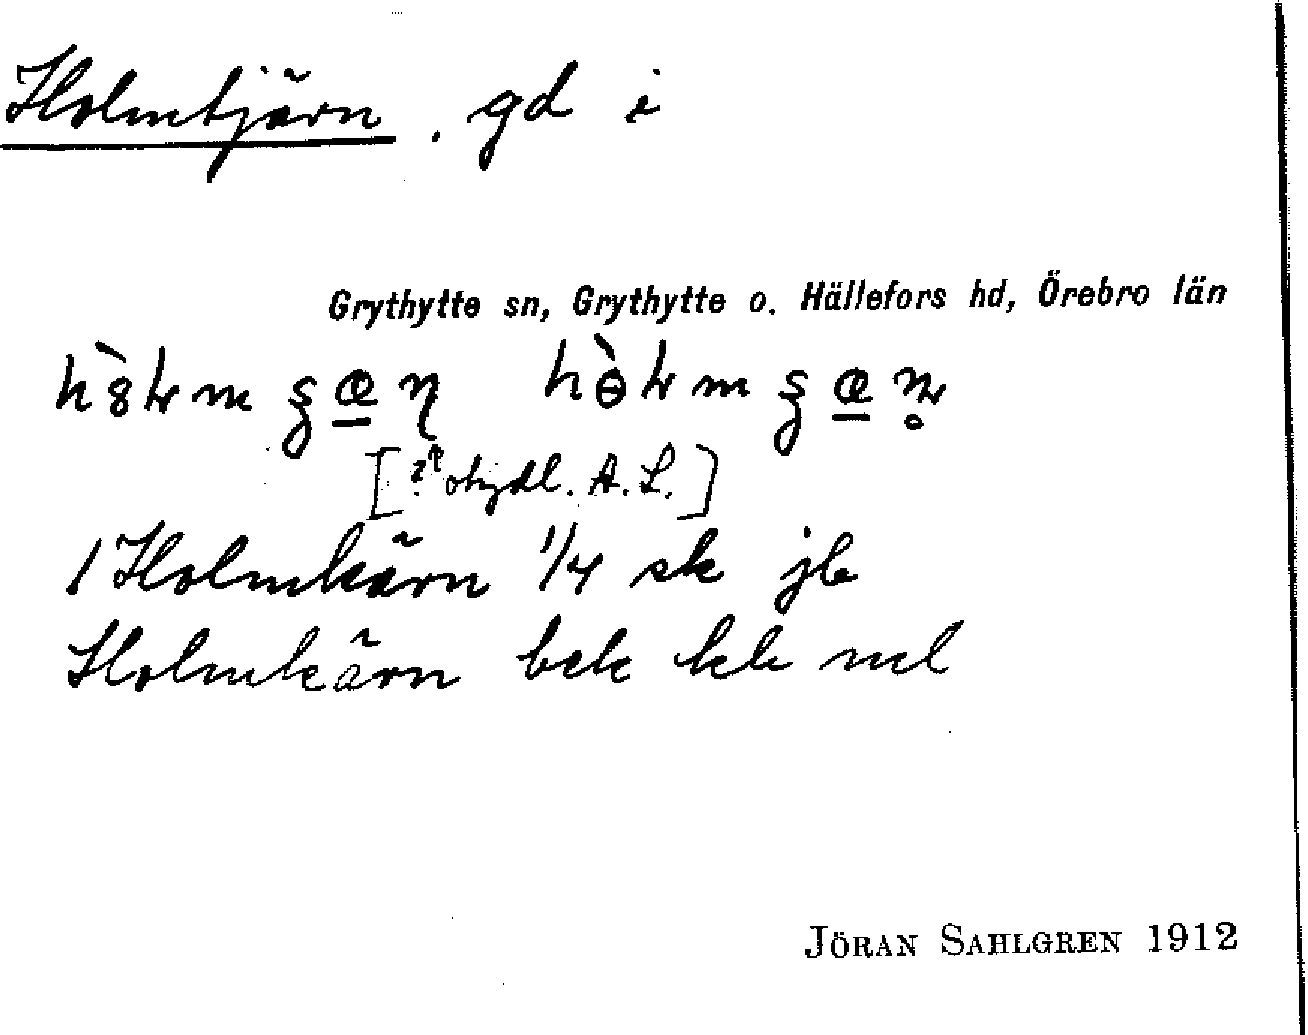 Holmtjärn. gd i
Grythytte sn, Grythytte o. Hällefors hd, Örebro län
[? otydl. A. L.]
1 Holmkärn 1/4 sk jb
Holmkärn bek kb ncl
JÖRAN SAHLGREN 1912